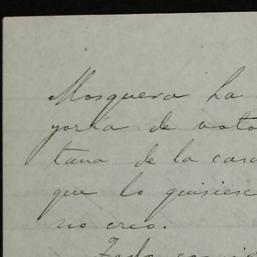 Mosquera ha
yoría de voto
tana de la casa
que lo quisiese
no creo.
Todo